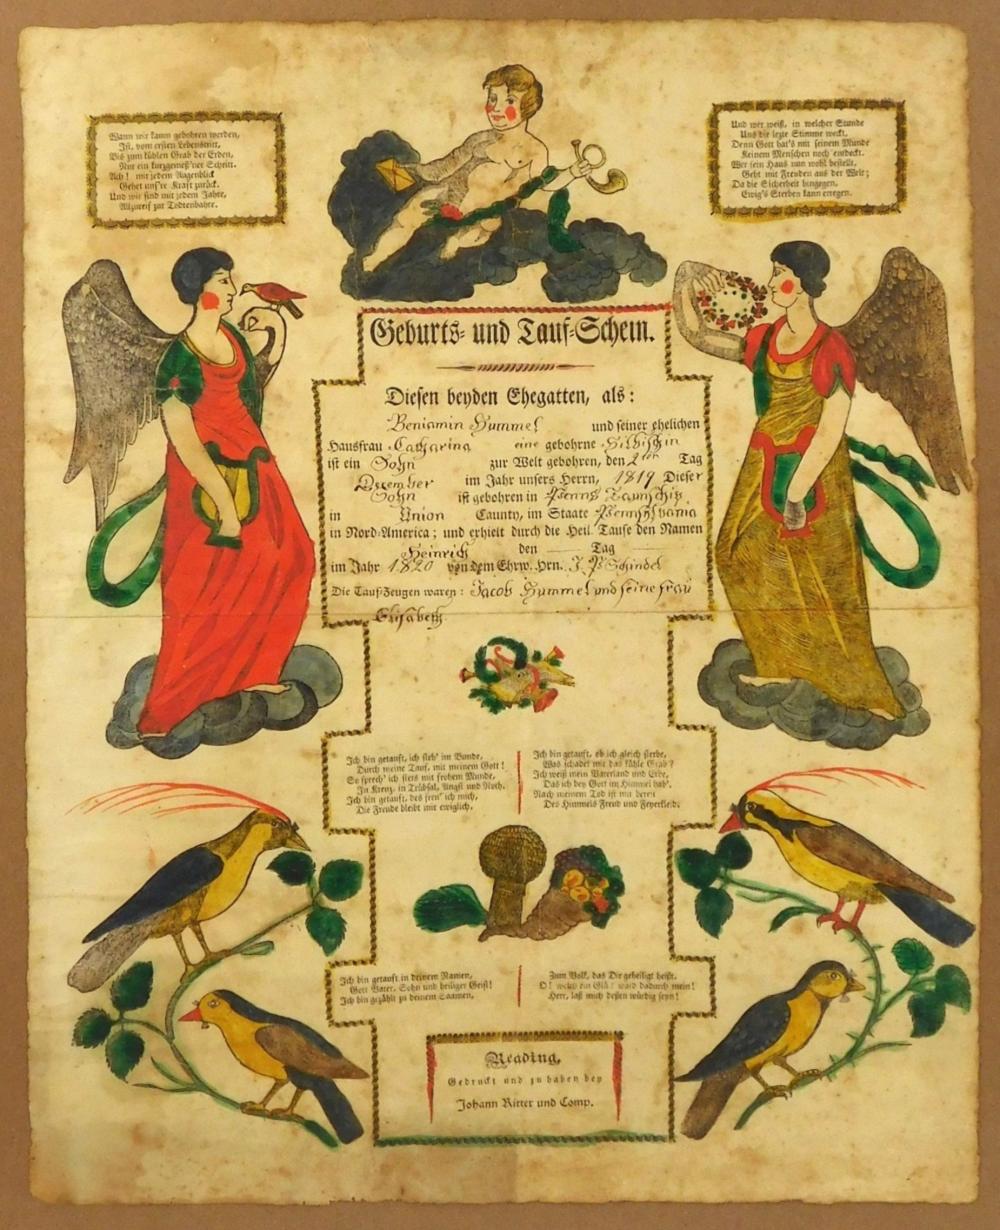 Wann wir kaum gebohren werden,
Ist, vom ersten Lebenstritt,
Bis zum kühlen Grab der Erden,
Nur ein kurzgemeß'ner Schritt.
Ach! mit jedem Augenblick
Gehet uns're Kraft zurück.
Und wir sind mit jedem Jahre,
Allzureif zur Todtenbahre.
Und wer weiß, in welcher Stunde
Uns die lezte Stimme weckt.
Denn Gott hat's mit seinem Munde
Keinem Menschen noch entdeckt.
Wer sein Haus nun wohl bestellt,
Geht mit Freuden aus der Welt;
Da die Sicherheit hingegen,
Ewig's Sterben kann erregen.
Geburts- und Tauf-Schein.
Diesen beyden Ehegatten, als:
Beniamin Hummel und seiner ehelichen
Hausfrau Catharina eine gebohrne
ist ein Sohn zur Welt gebohren, den 2ter Tag
December im Jahr unsers Herrn, 1819 Dieser
Sohn ist gebohren in Penns Taunschip
in Union Caunty, im Staate Pennsylvania
in Nord-America; und erhielt durch die Heil. Taufe den Namen
Heinrich den Tag
im Jahr 1820 von dem Ehrw. Hrn. J. P. Schindel
Die Tauf-Zeugen waren: Jacob Hummel und seine frau
Elisabeth
Ich bin getauft, ich steh' im Bunde,
Durch meine Tauf, mit meinem Gott!
So sprech' ich stets mit frohem Munde,
In Kreuz, in Trübsal, Angst und Noth.
Ich bin getauft, des freu' ich mich,
Die Freude bleibt mir ewiglich.
Ich bin getauft, ob ich gleich sterbe,
Was schadet mir das kühle Grab?
Ich weiß mein Vaterland und Erbe,
Das ich bey Gott im Himmel hab'.
Nach meinem Tod ist mir bereit
Des Himmels Freud und Feyerkleid.
Ich bin getauft in deinem Namen,
Gott Vater, Sohn und heiliger Geist!
Ich bin gezählt zu deinem Saamen,
Zum Volk, das Dir geheiligt heißt.
O! welch ein Glück ward dadurch mein!
Herr, laß mich deßen würdig seyn!
Reading,
Gedruckt und zu haben bey
Johann Ritter und Comp.